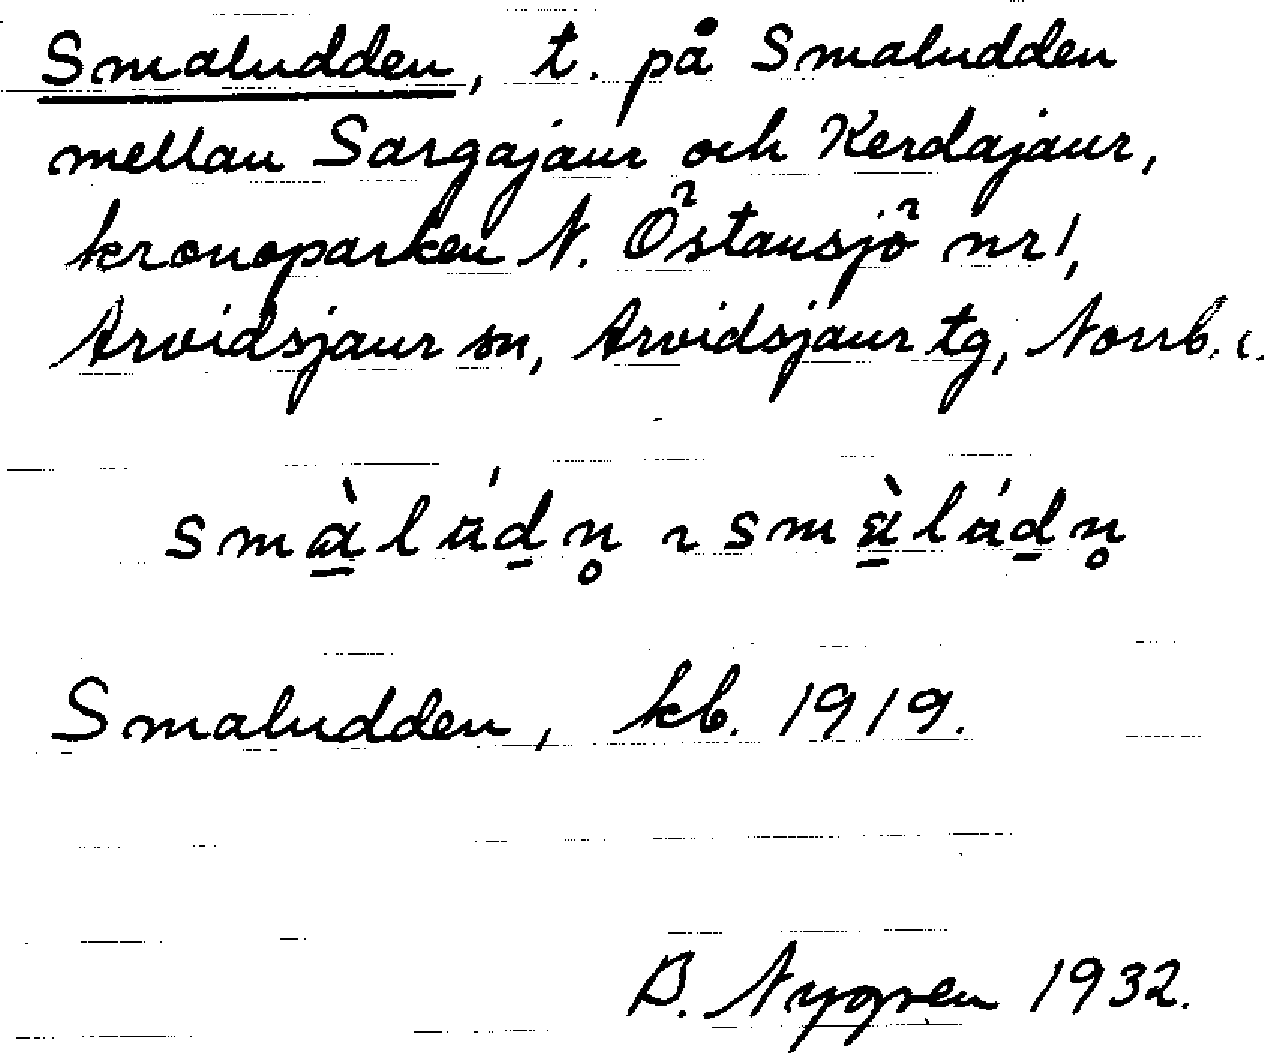 Smaludden, t. på Smaludden
mellan Sargajaur och Kerdajaur,
kronoparken N. Östansjö nr 1,
Arvidsjaur sn, Arvidsjaur tg, Norrb. l.
Smaludden, kb. 1919.
B. Nygren 1932.